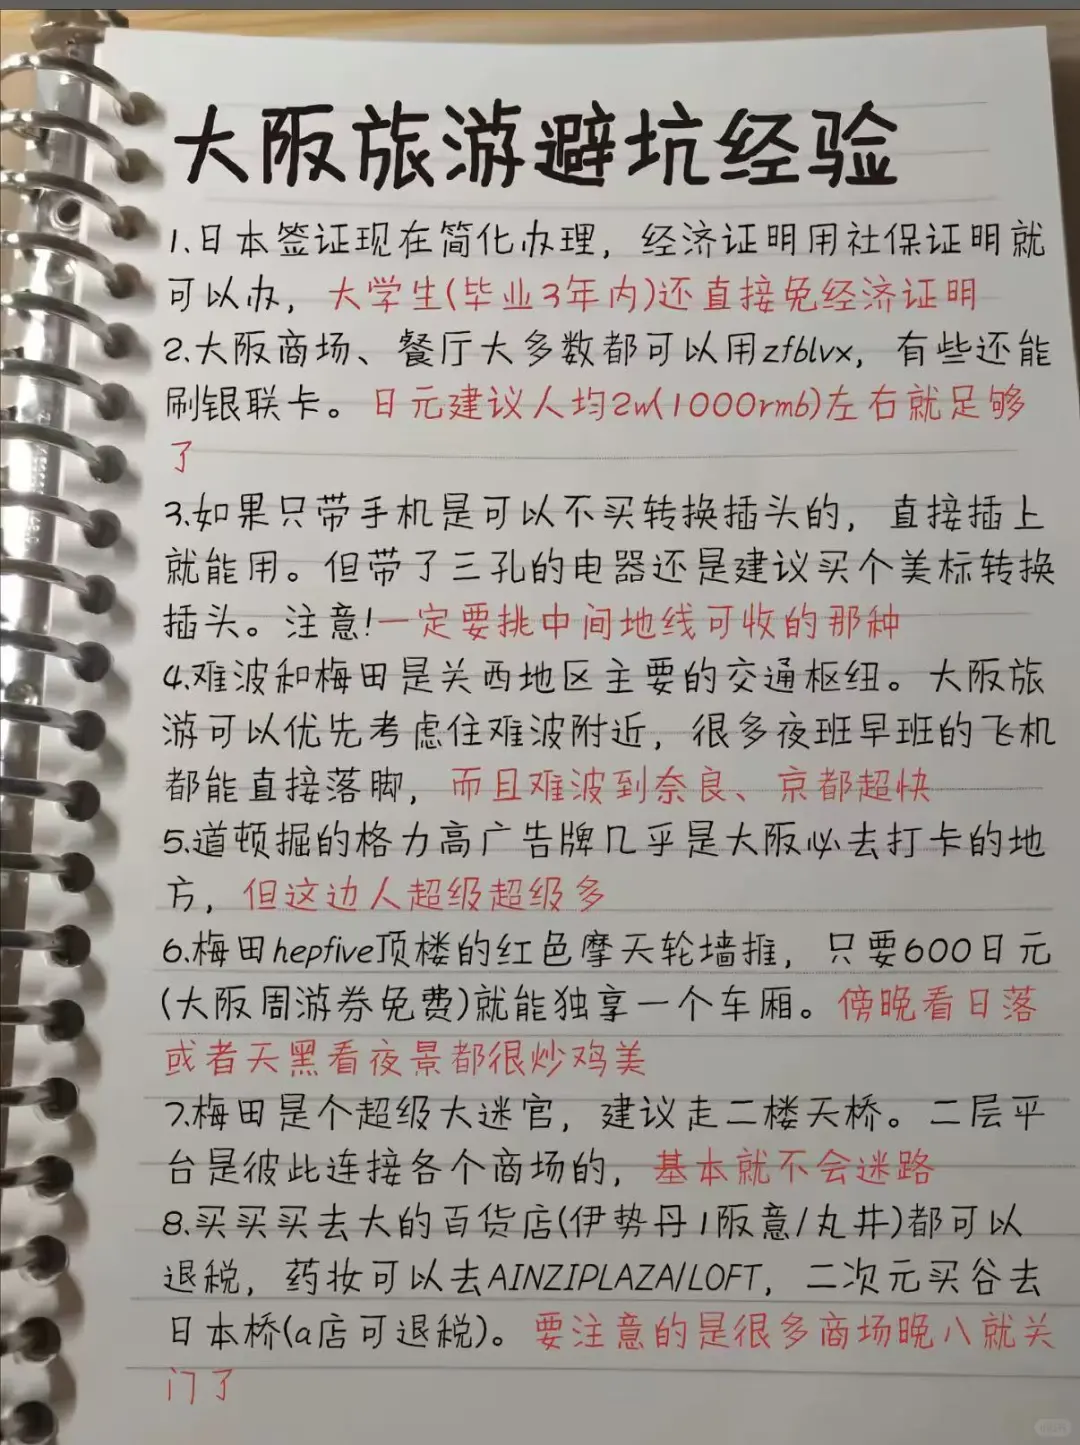 大阪旅游避坑经验
1.日本签证现在简化办理，经济证明用社保证明就
可以办，大学生(毕业3年内)还直接免经济证明
2.大阪商场、餐厅大多数都可以用zfblvx，有些还能
刷银联卡。日元建议人均2w(1000rmb)左右就足够
了
3.如果只带手机是可以不买转换插头的，直接插上
就能用。但带了三孔的电器还是建议买个美标转换
插头。注意!一定要挑中间地线可收的那种
4.难波和梅田是关西地区主要的交通枢纽。大阪旅
游可以优先考虑住难波附近，很多夜班早班的飞机
都能直接落脚，而且难波到奈良、京都超快
5.道顿掘的格力高广告牌几乎是大阪必去打卡的地
方，但这边人超级超级多
6.梅田hepfive顶楼的红色摩天轮墙推，只要600日元
(大阪周游券免费)就能独享一个车厢。傍晚看日落
或者天黑看夜景都很炒鸡美
7.梅田是个超级大迷宫，建议走二楼天桥。二层平
台是彼此连接各个商场的，基本就不会迷路
8.买买买去大的百货店(伊势丹1阪意/丸井)都可以
退税，药妆可以去AINZIPLAZA/LOFT，二次元买谷去
日本桥(a店可退税)。要注意的是很多商场晚八就关
门了